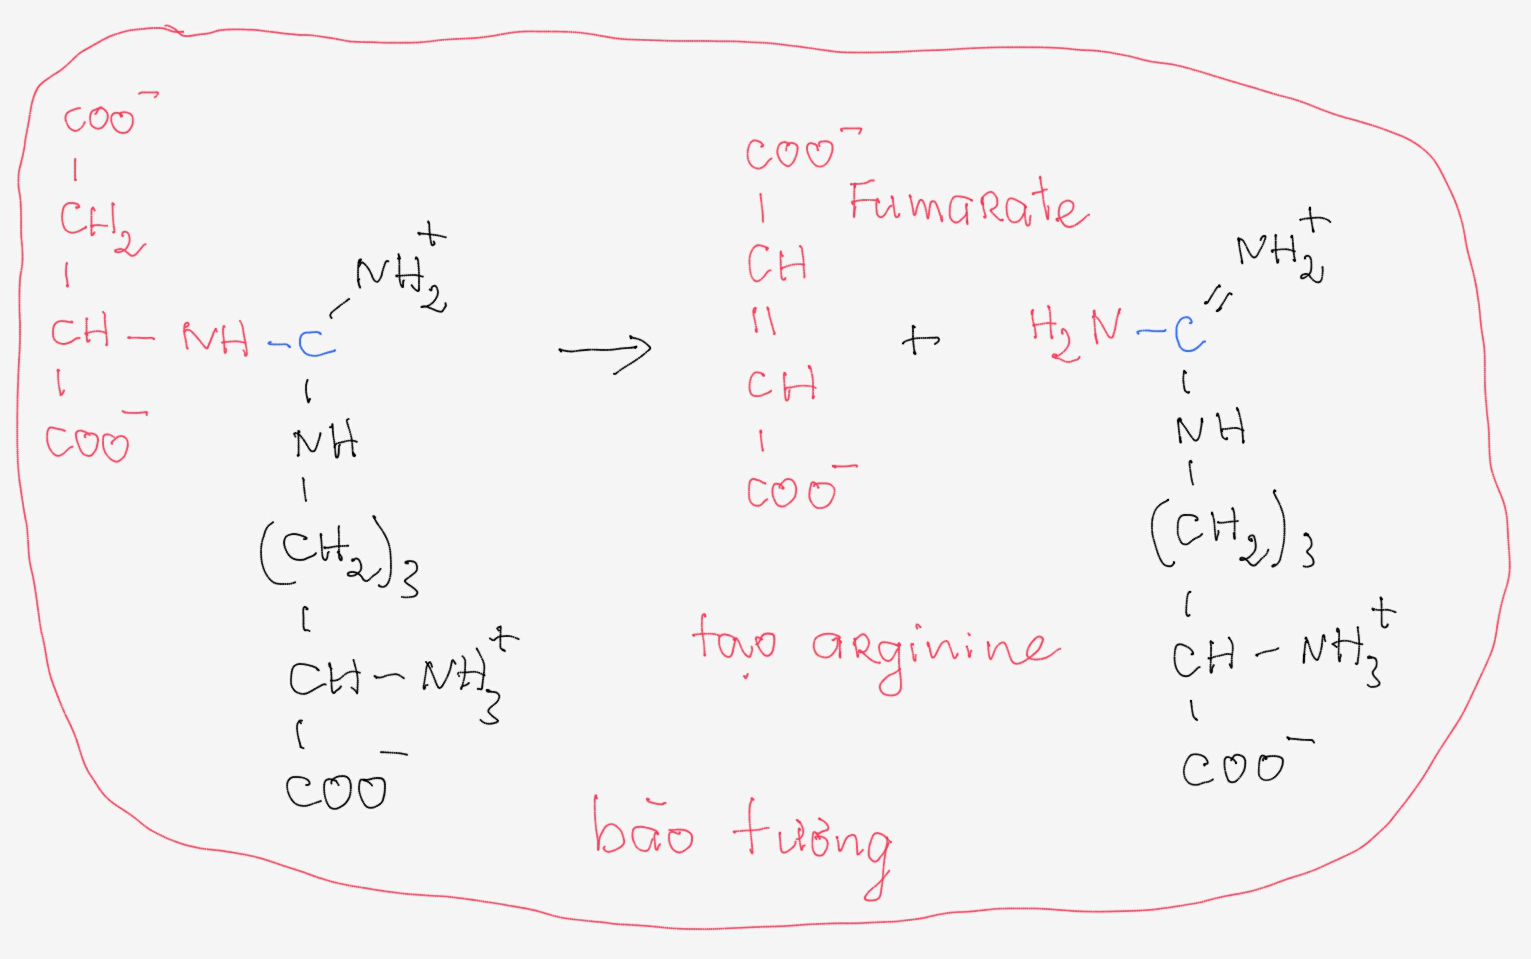 COO⁻
CH₂
CH – NH – C – NH₂⁺
COO⁻
NH
(CH₂)₃
CH – NH₃⁺
COO⁻
→
COO⁻
CH
||
CH
COO⁻
Fumarate
+
H₂N – C = NH₂⁺
NH
(CH₂)₃
CH – NH₃⁺
COO⁻
tạo arginine
bāo tương